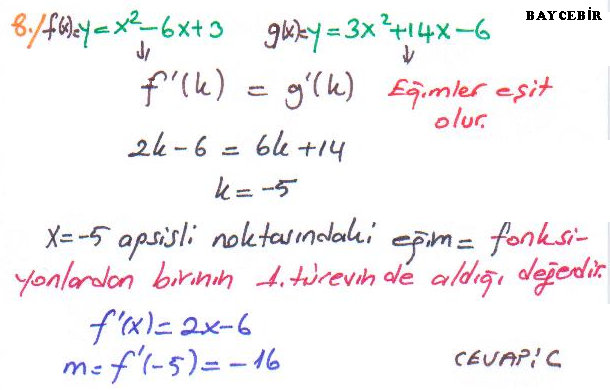 BAYCEBİR
8./ f(x)=y=x²-6x+3 g(x)=y=3x²+14x-6
↓ ↓
f'(k) = g'(k) Eğimler eşit
olur.
2k-6 = 6k+14
k=-5
x=-5 apsisli noktasındaki eğim= fonksi-
yonlardan birinin 1. türevinde aldığı değerdir.
f'(x)=2x-6
m=f'(-5)=-16
CEVAP: C